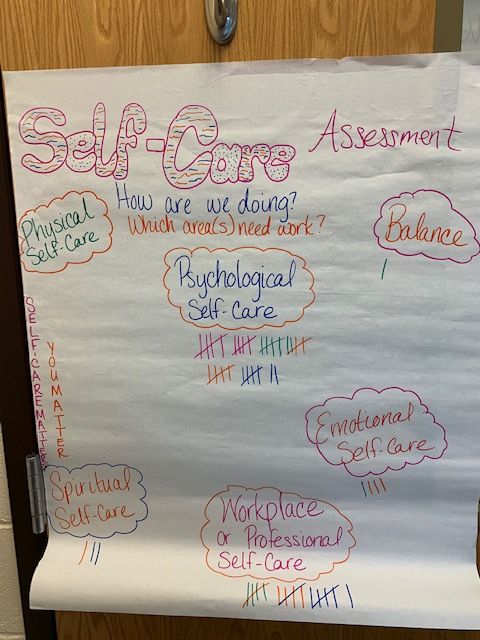 Self-Care Assessment
How are we doing?
Which area(s) need work?
Physical
Self-Care
Balance
Psychological
Self-Care
SELF-CARE MATTERS
YOU MATTER
Emotional
Self-Care
Spiritual
Self-Care
Workplace
or Professional
Self-Care